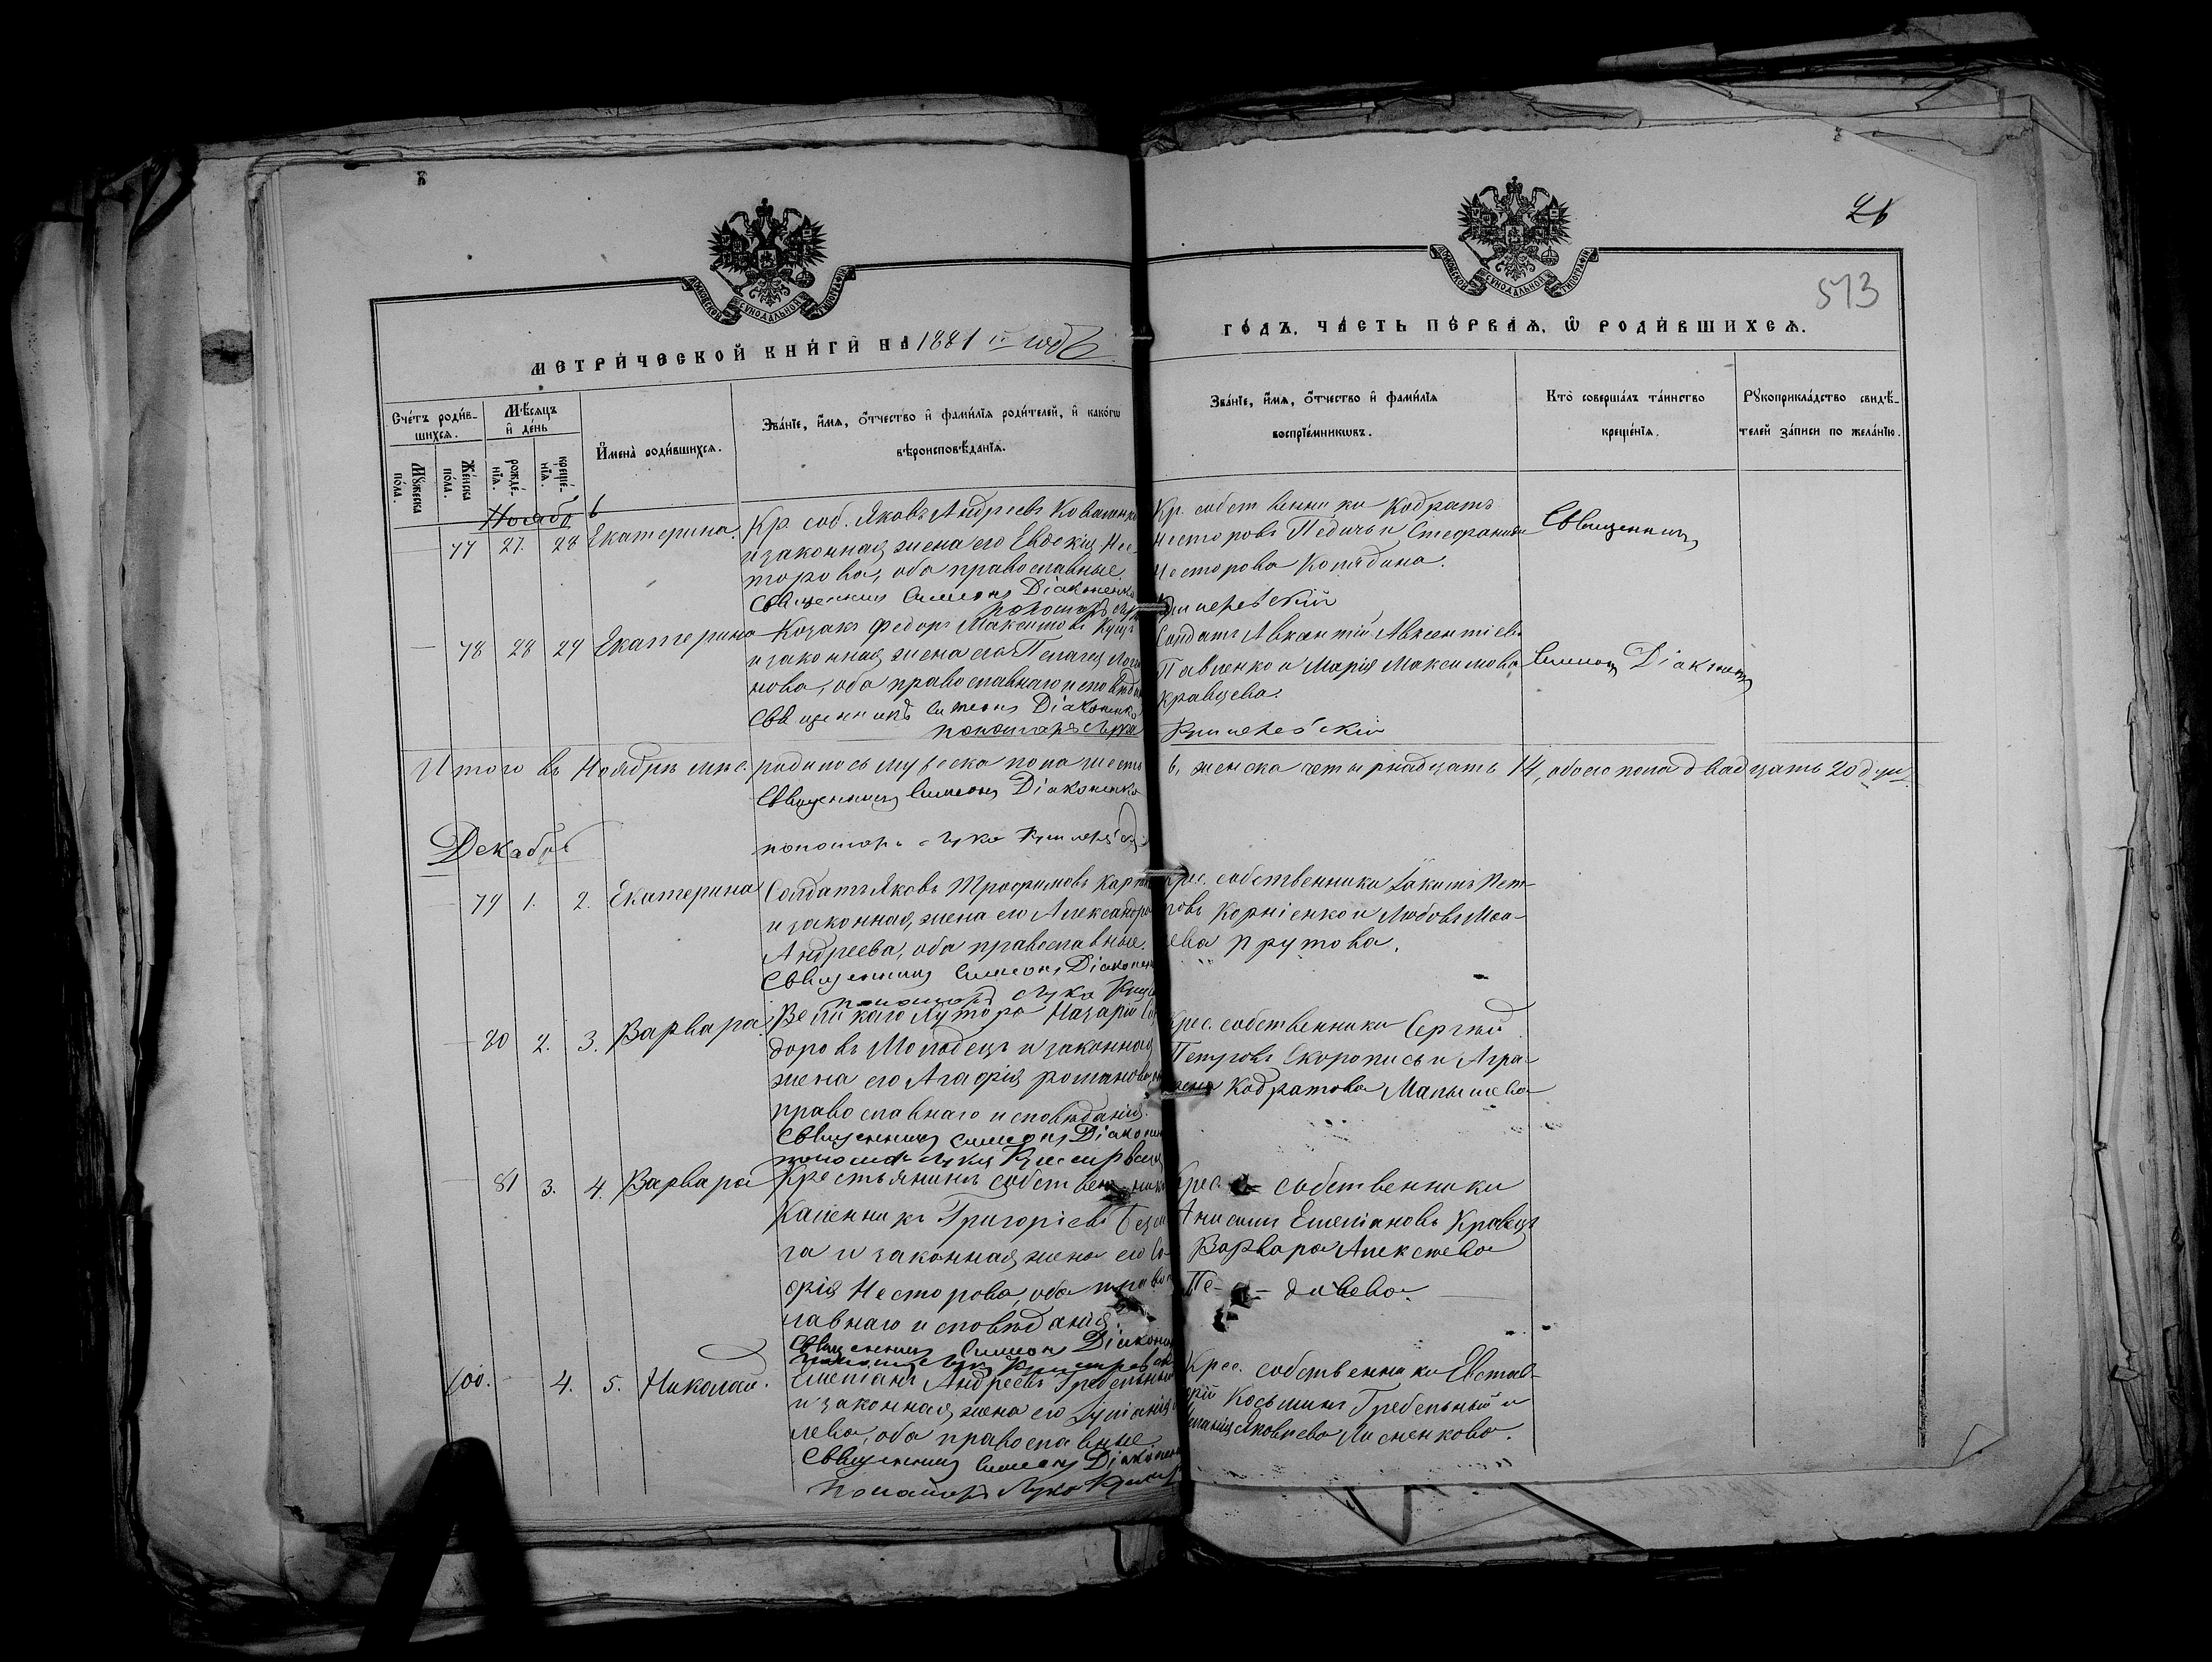 26
513
МОСКОВСКОЙ СѴНОДАЛЬНОЙ ТИПОГРАФІИ
МОСКОВСКОЙ СѴНОДАЛЬНОЙ ТИПОГРАФІИ
МЕТРИ́ЧЕСКОЙ КНИ́ГИ НА 1881 й годъ
ГО́ДЪ, ЧА́СТЬ ПЕ́РВАЯ, Ѡ РОДИ́ВШИХСЯ.
Сче́тъ роди́в-
шихся.
Мꙋ́жеска по́ла.
Же́нска по́ла.
Мѣ́сяцъ и де́нь
рожде́-нїя.
креще́-нїя.
И҆мена̀ роди́вшихся.
Зва́нїе, и҆́мя, ѻ҆́тчество и҆ фами́лїя роди́телей, и҆ како́гѡ
вѣроисповѣ́данїя.
Зва́нїе, и҆́мя, ѻ҆́тчество и҆ фами́лїя
воспрїе́мникѡвъ.
Кто̀ соверша́лъ та́инство
креще́нїя.
Рꙋкоприкла́дство свидѣ́-
телей за́писи по жела́нїю.
Ноябр
— 77 27. 28 Екатерина.
Кр. соб. Яковъ Андреевъ
и законная жена его Евдокія Нес-
торова, оба православные.
Священникъ Симеонъ Діаконенко
пономарь
Кр. собственники Кодратъ
Несторовъ и Стефанида
Несторова
Священникъ
— 78 28 29 Екатерина
Козакъ Федоръ Максимовъ
и законная жена его Пелагея
нова, оба православнаго исповѣдан
Священникъ Симеонъ Діаконенко
пономарь Лука
Солдатъ Авксентій Авксентіевъ
Павленко и Марія Максимова
Кравцева.
Симеонъ Діаконенко
Итого въ Ноябрѣ мѣс. родилось мужеска пола шесть 6, женска четырнадцать 14, обоего пола двадцать 20 душ.
Священникъ Симеонъ Діаконенко
пономарь Лука
Декабрь
— 79 1. 2. Екатерина
Солдатъ Яковъ Трофимовъ
и законная жена его Александра
Андреева, оба православные.
Священникъ Симеонъ Діаконен
пономарь Лука
Крес. собственники Іакимъ Пет-
ровъ Корніенко и Любовь
Прутова.
— 80 2. 3. Варвара
Великаго Хутора Назарій
доровъ Молодецъ и законная
жена его Агафія Романова
православнаго исповѣданія.
Священникъ Симеонъ Діаконен
пономарь Лука
Крес. собственники Сергѣй
Петровъ Скоропись и Агра-
фена Кодратова Малышева
— 81 3. 4. Варвара
Крестьянинъ собственникъ
Каленникъ Григоріевъ
га и законная жена его Со-
фія Несторова, оба правос
лавнаго исповѣданія.
Священникъ Симеонъ Діаконен
пономарь Лука
Крес. собственники
Анисимъ Емеліановъ Кравецъ
Варвара Алексѣева
100. — 4. 5. Николай.
Емеліанъ Андреевъ Гребельный
и законная жена его Іуліанія
лева, оба православные
Священникъ Симеонъ Діаконен
Пономарь Лука
Крес. собственники Евстаф-
ерій Косьминъ Гребельный и
Яковлева Лисненкова.